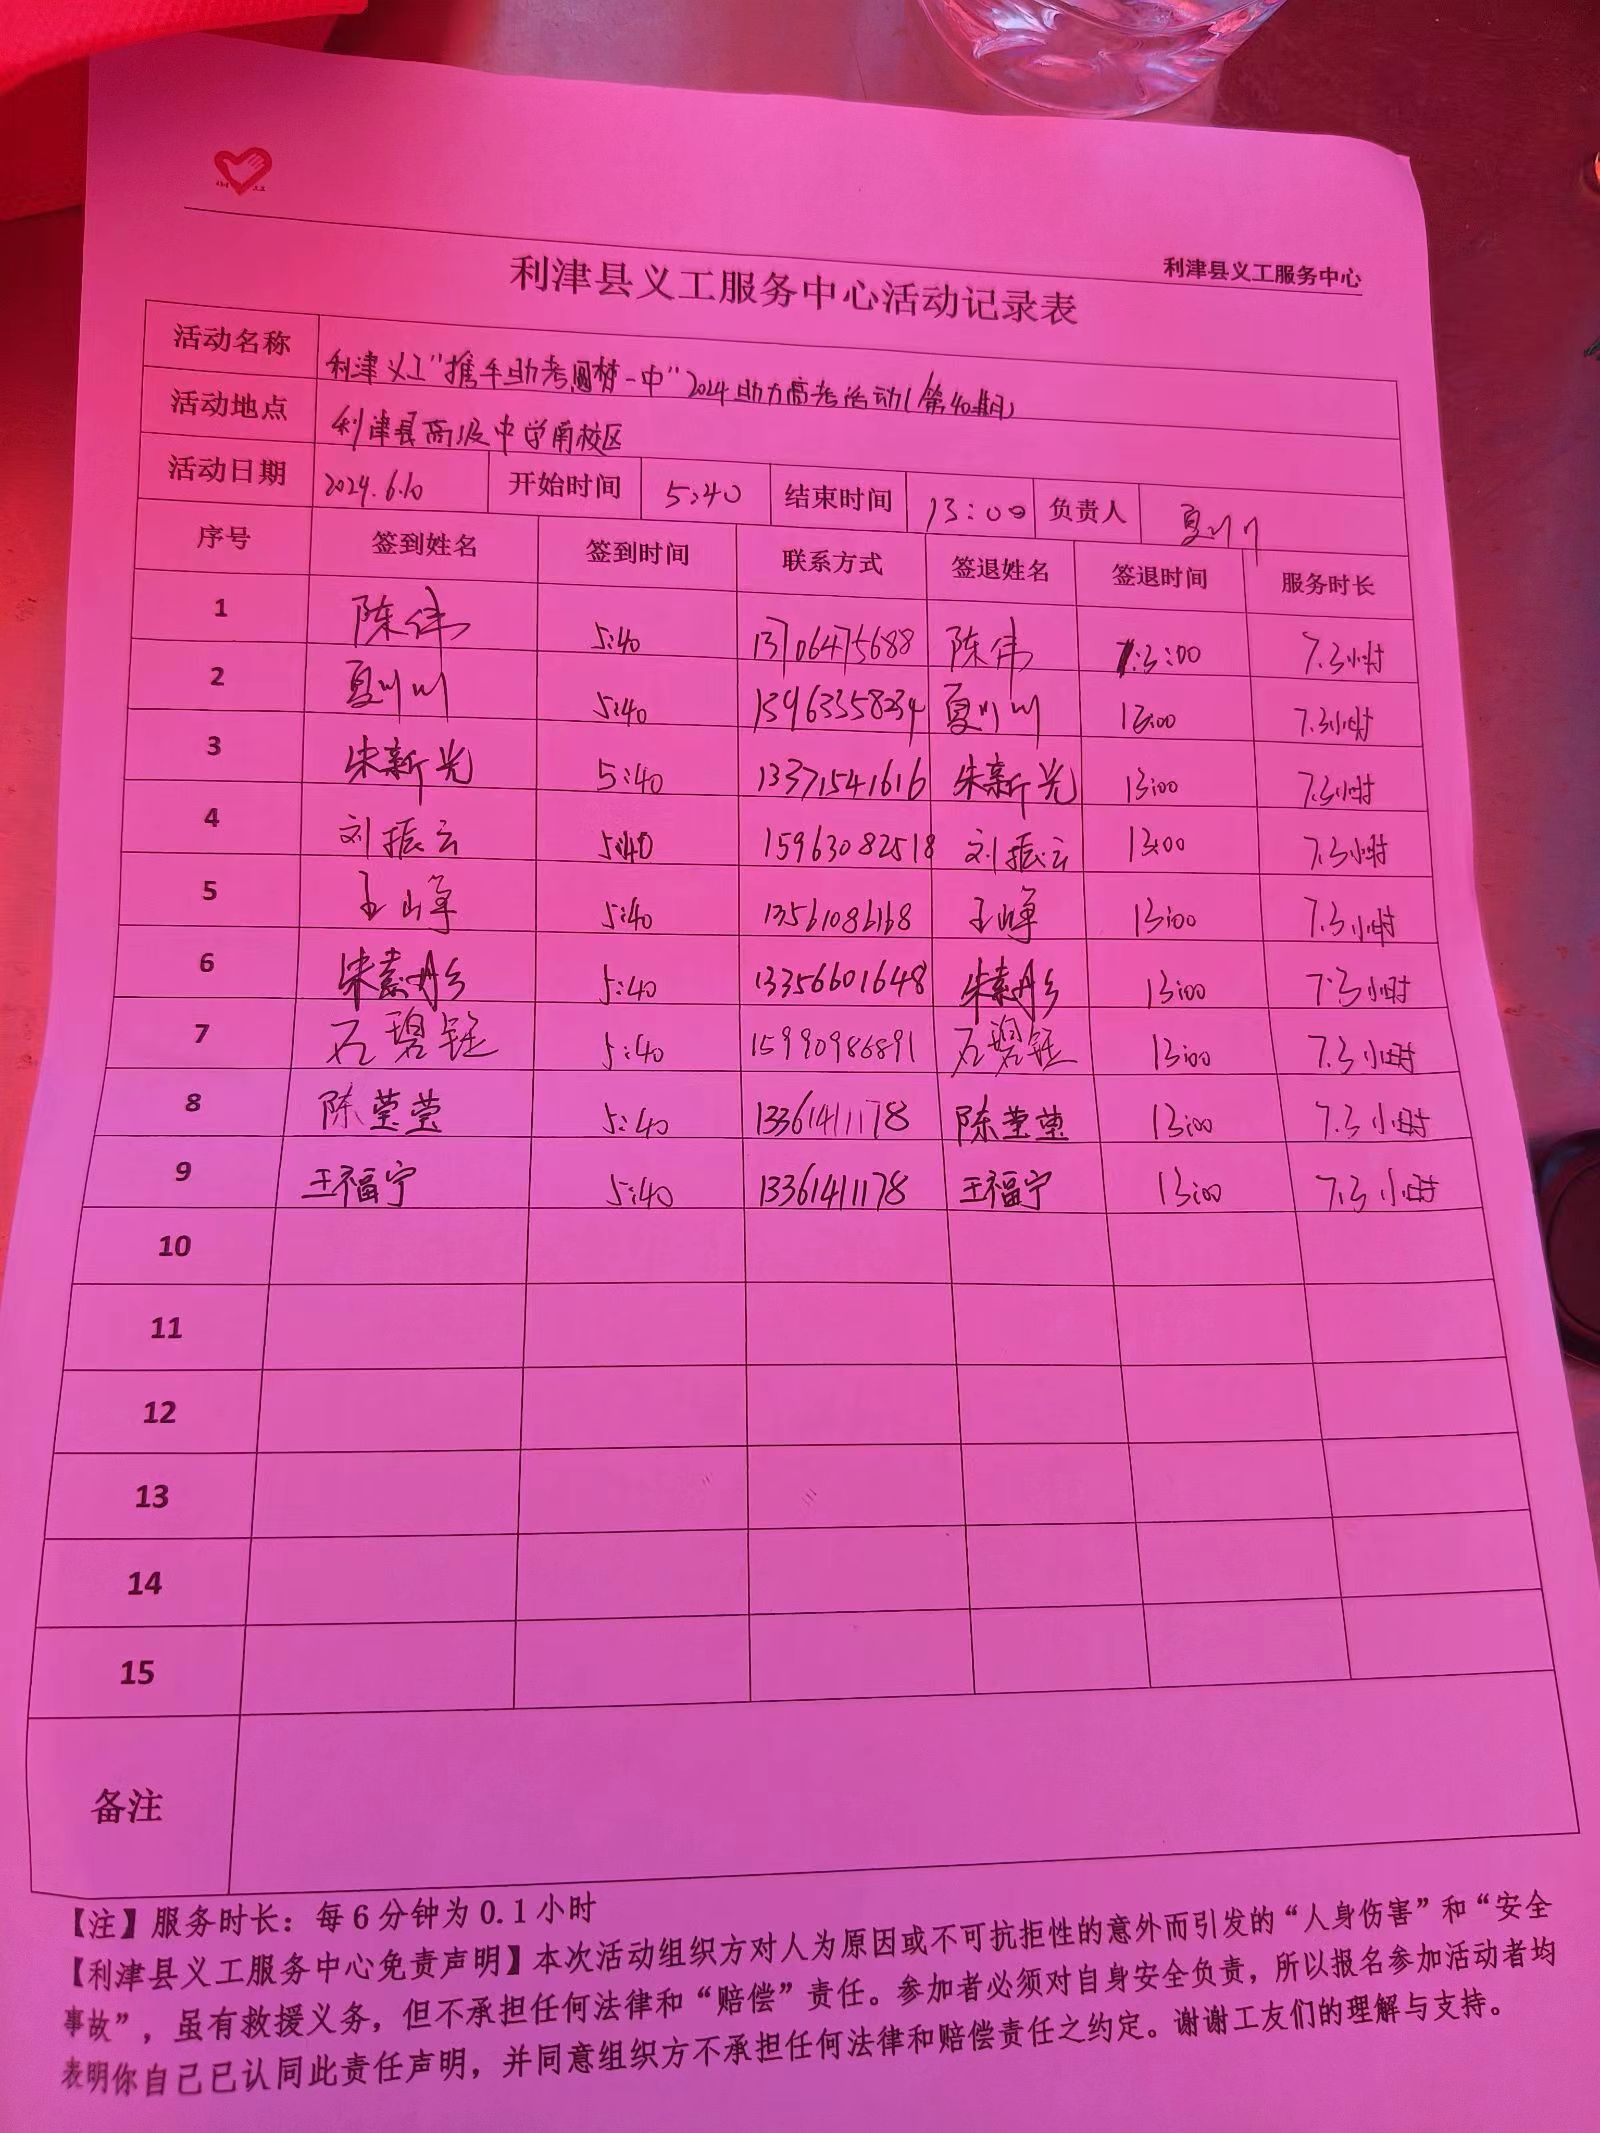 利津县义工服务中心
利津县义工服务中心活动记录表
活动名称 利津义工"携手助考圆梦一中"2024助力高考活动(第40期)
活动地点 利津县高级中学南校区
活动日期 2024.6.10 开始时间 5:40 结束时间 13:00 负责人 夏川川
序号 签到姓名 签到时间 联系方式 签退姓名 签退时间 服务时长
1 陈伟 5:40 13706475688 陈伟 13:00 7.3小时
2 夏川川 5:40 15963358234 夏川川 13:00 7.3小时
3 朱新光 5:40 13371541616 朱新光 13:00 7.3小时
4 刘振云 5:40 15963082518 刘振云 13:00 7.3小时
5 王峰 5:40 13561086168 王峰 13:00 7.3小时
6 朱素丹 5:40 13356601648 朱素丹 13:00 7.3小时
7 石碧钰 5:40 15990986891 石碧钰 13:00 7.3小时
8 陈莹莹 5:40 13361411178 陈莹莹 13:00 7.3小时
9 王福宁 5:40 13361411178 王福宁 13:00 7.3小时
10
11
12
13
14
15
备注
【注】服务时长：每6分钟为0.1小时
【利津县义工服务中心免责声明】本次活动组织方对人为原因或不可抗拒性的意外而引发的“人身伤害”和“安全
事故”，虽有救援义务，但不承担任何法律和“赔偿”责任。参加者必须对自身安全负责，所以报名参加活动者均
表明你自己已认同此责任声明，并同意组织方不承担任何法律和赔偿责任之约定。谢谢工友们的理解与支持。